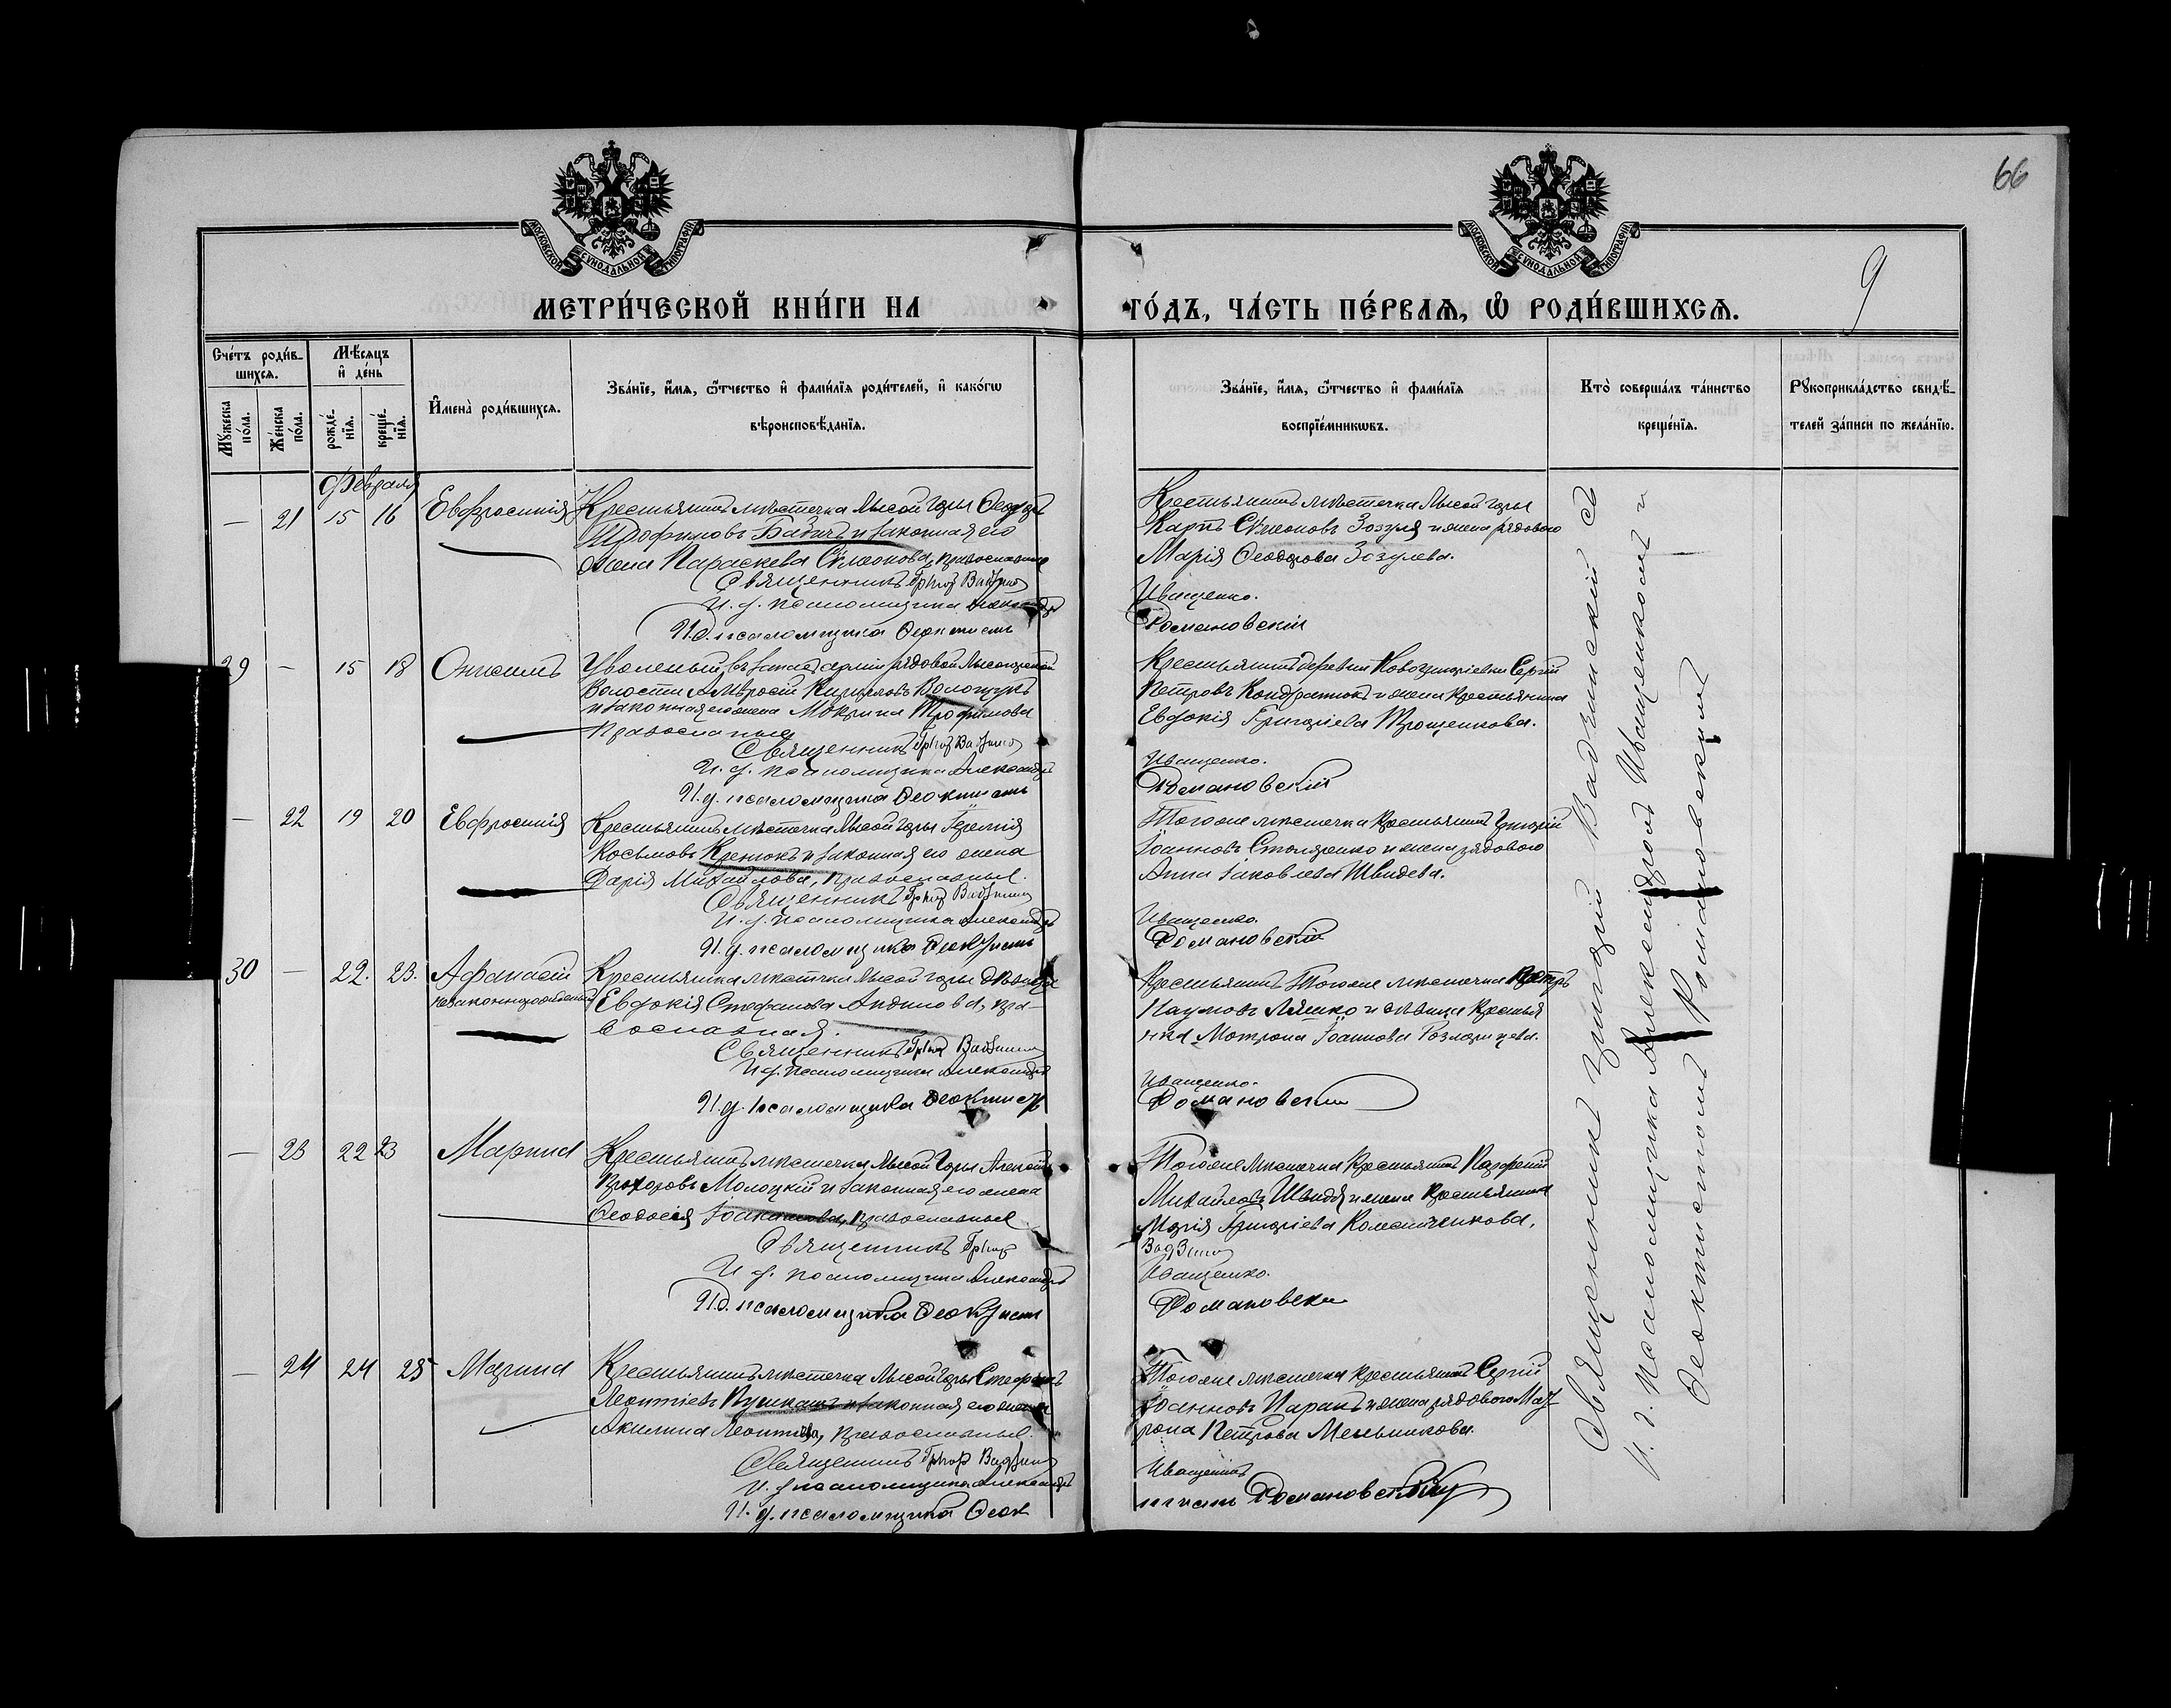 66
9
МОСКОВСКОЙ СѴНОДАЛЬНОЙ ТИПОГРАФІИ
МОСКОВСКОЙ СѴНОДАЛЬНОЙ ТИПОГРАФІИ
МЕТРИ́ЧЕСКОЙ КНИ́ГИ НА
ГО́ДЪ, ЧА́СТЬ ПЕ́РВАѦ, Ѡ҆ РОДИ́ВШИХСѦ.
Сче́тъ роди́в-
шихсѧ.
Мꙋжеска по́ла.
Же́нска по́ла.
Мѣ́сяцъ
и҆ де́нь
рожде́-
нїѧ.
креще́-
нїѧ.
И҆мена̀ роди́вшихсѧ.
Зва́нїе, и҆́мѧ, ѻ҆́тчество и҆ фами́лїѧ роди́телей, и҆ како́гѡ
вѣроисповѣ́данїѧ.
Зва́нїе, и҆́мѧ, ѻ҆́тчество и҆ фами́лїѧ
воспрїе́мникѡвъ.
Кто̀ соверша́лъ та́инство
креще́нїѧ.
Рꙋкоприкла́дство свидѣ́-
телей за́писи по жела́нїю.
Февраля
— 21 15 16 Евфросинія
Крестьянинъ мѣстечка Лысой Горы Ѳеодоръ
Трофимовъ Бабичъ и законная его
жена Параскева Сѵмеонова, православные
Священникъ Григор Вадзинс
И. д. псаломщика Александръ
И.д. псаломщика Ѳеоктистъ
Крестьянинъ мѣстечка Лысой Горы
Карпъ Сѵмеоновъ Зозуля и жена рядового
Марія Ѳеодорова Зозулева.
Иващенко.
Романовскій
29 — 15 18 Онисимъ
Уволеный въ запасъ арміи рядовой Лысогорской
Волости Амвросій Кирилловъ Вологжукъ
и законная его жена Мокрина Трофимова
Православные
Священникъ Григор Вадзинс
И. д. псаломщика Александръ
И.д. псаломщика Ѳеоктистъ
Крестьянинъ деревни Новогригорьевки Сергій
Петровъ Кондратюкъ и жена крестьянина
Евдокія Григоріева Трощенкова.
Иващенко.
Романовскій
— 22 19 20 Евфросинія
Крестьянинъ мѣстечка Лысой Горы Іеремія
Косьмовъ Кренюкъ и законная его жена
Дарія Михайлова, православные.
Священникъ Григор Вадзинс
И. д. псаломщика Александръ
И.д. псаломщика Ѳеоктистъ
Тогоже мѣстечка крестьянинъ Григорій
Іоанновъ Столяренко и жена рядового
Анна Іаковлева Швидева.
Иващенко.
Романовскій
30 — 22. 23. Аѳанасій
незаконнорожденный
Крестьянка мѣстечка Лысой Горы дѣвица
Евдокія Стефанова, пра-
вославная.
Священникъ Григор Вадзинс
И.д. псаломщика Александръ
И.д. псаломщика Ѳеоктистъ
Крестьянинъ Тогоже мѣстечка Петръ
Наумовъ Ляшко и дѣвица крестья
нка Матрона Іоаннова
Иващенко.
Романовскій
— 23 22 23 Марина
Крестьянинъ мѣстечка Лысой Горы Алексій
Прохоровъ Молоцкій и законная его жена
Ѳеодосія Іоакимова, православные.
Священникъ Григор
И. д. псаломщика Александръ
И.д. псаломщика Ѳеоктистъ
Тогоже мѣстечка крестьянинъ Парѳеній
Михайловъ Швидя и жена крестьянина
Марія Григоріева Колесниченкова.
Вадзинс
Иващенко.
Романовскі
— 24 24 25 Марина
Крестьянинъ мѣстечка Лысой Горы Стефанъ
Леонтіевъ Пушкашъ и законная его жена
Акилина Леонтіева, православные.
Священникъ Григор Вадзинс
И. д. псаломщика Александръ
И. д. псаломщика Ѳеок
Тогоже мѣстечка крестьянинъ Сергій
Іоанновъ Царанъ и жена рядового Мат
рона Петрова Мельникова.
Иващенко
тистъ Романовскій
Священникъ Григорій Вадзинскій съ
И. д. Псаломщика Александромъ Иващенкомъ и
Ѳеоктистомъ Романовскимъ